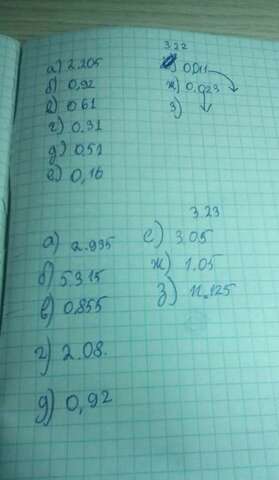 3.22
а) 2.205
б) 0,92
в) 0.61
г) 0.31
д) 0.51
е) 0,16
0.011
ж) 0.023
з)
3.23
а) 2.935
б) 5.315
в) 0.855
г) 2.08.
д) 0,92
е) 3.05
ж) 1.05
з) 11.125